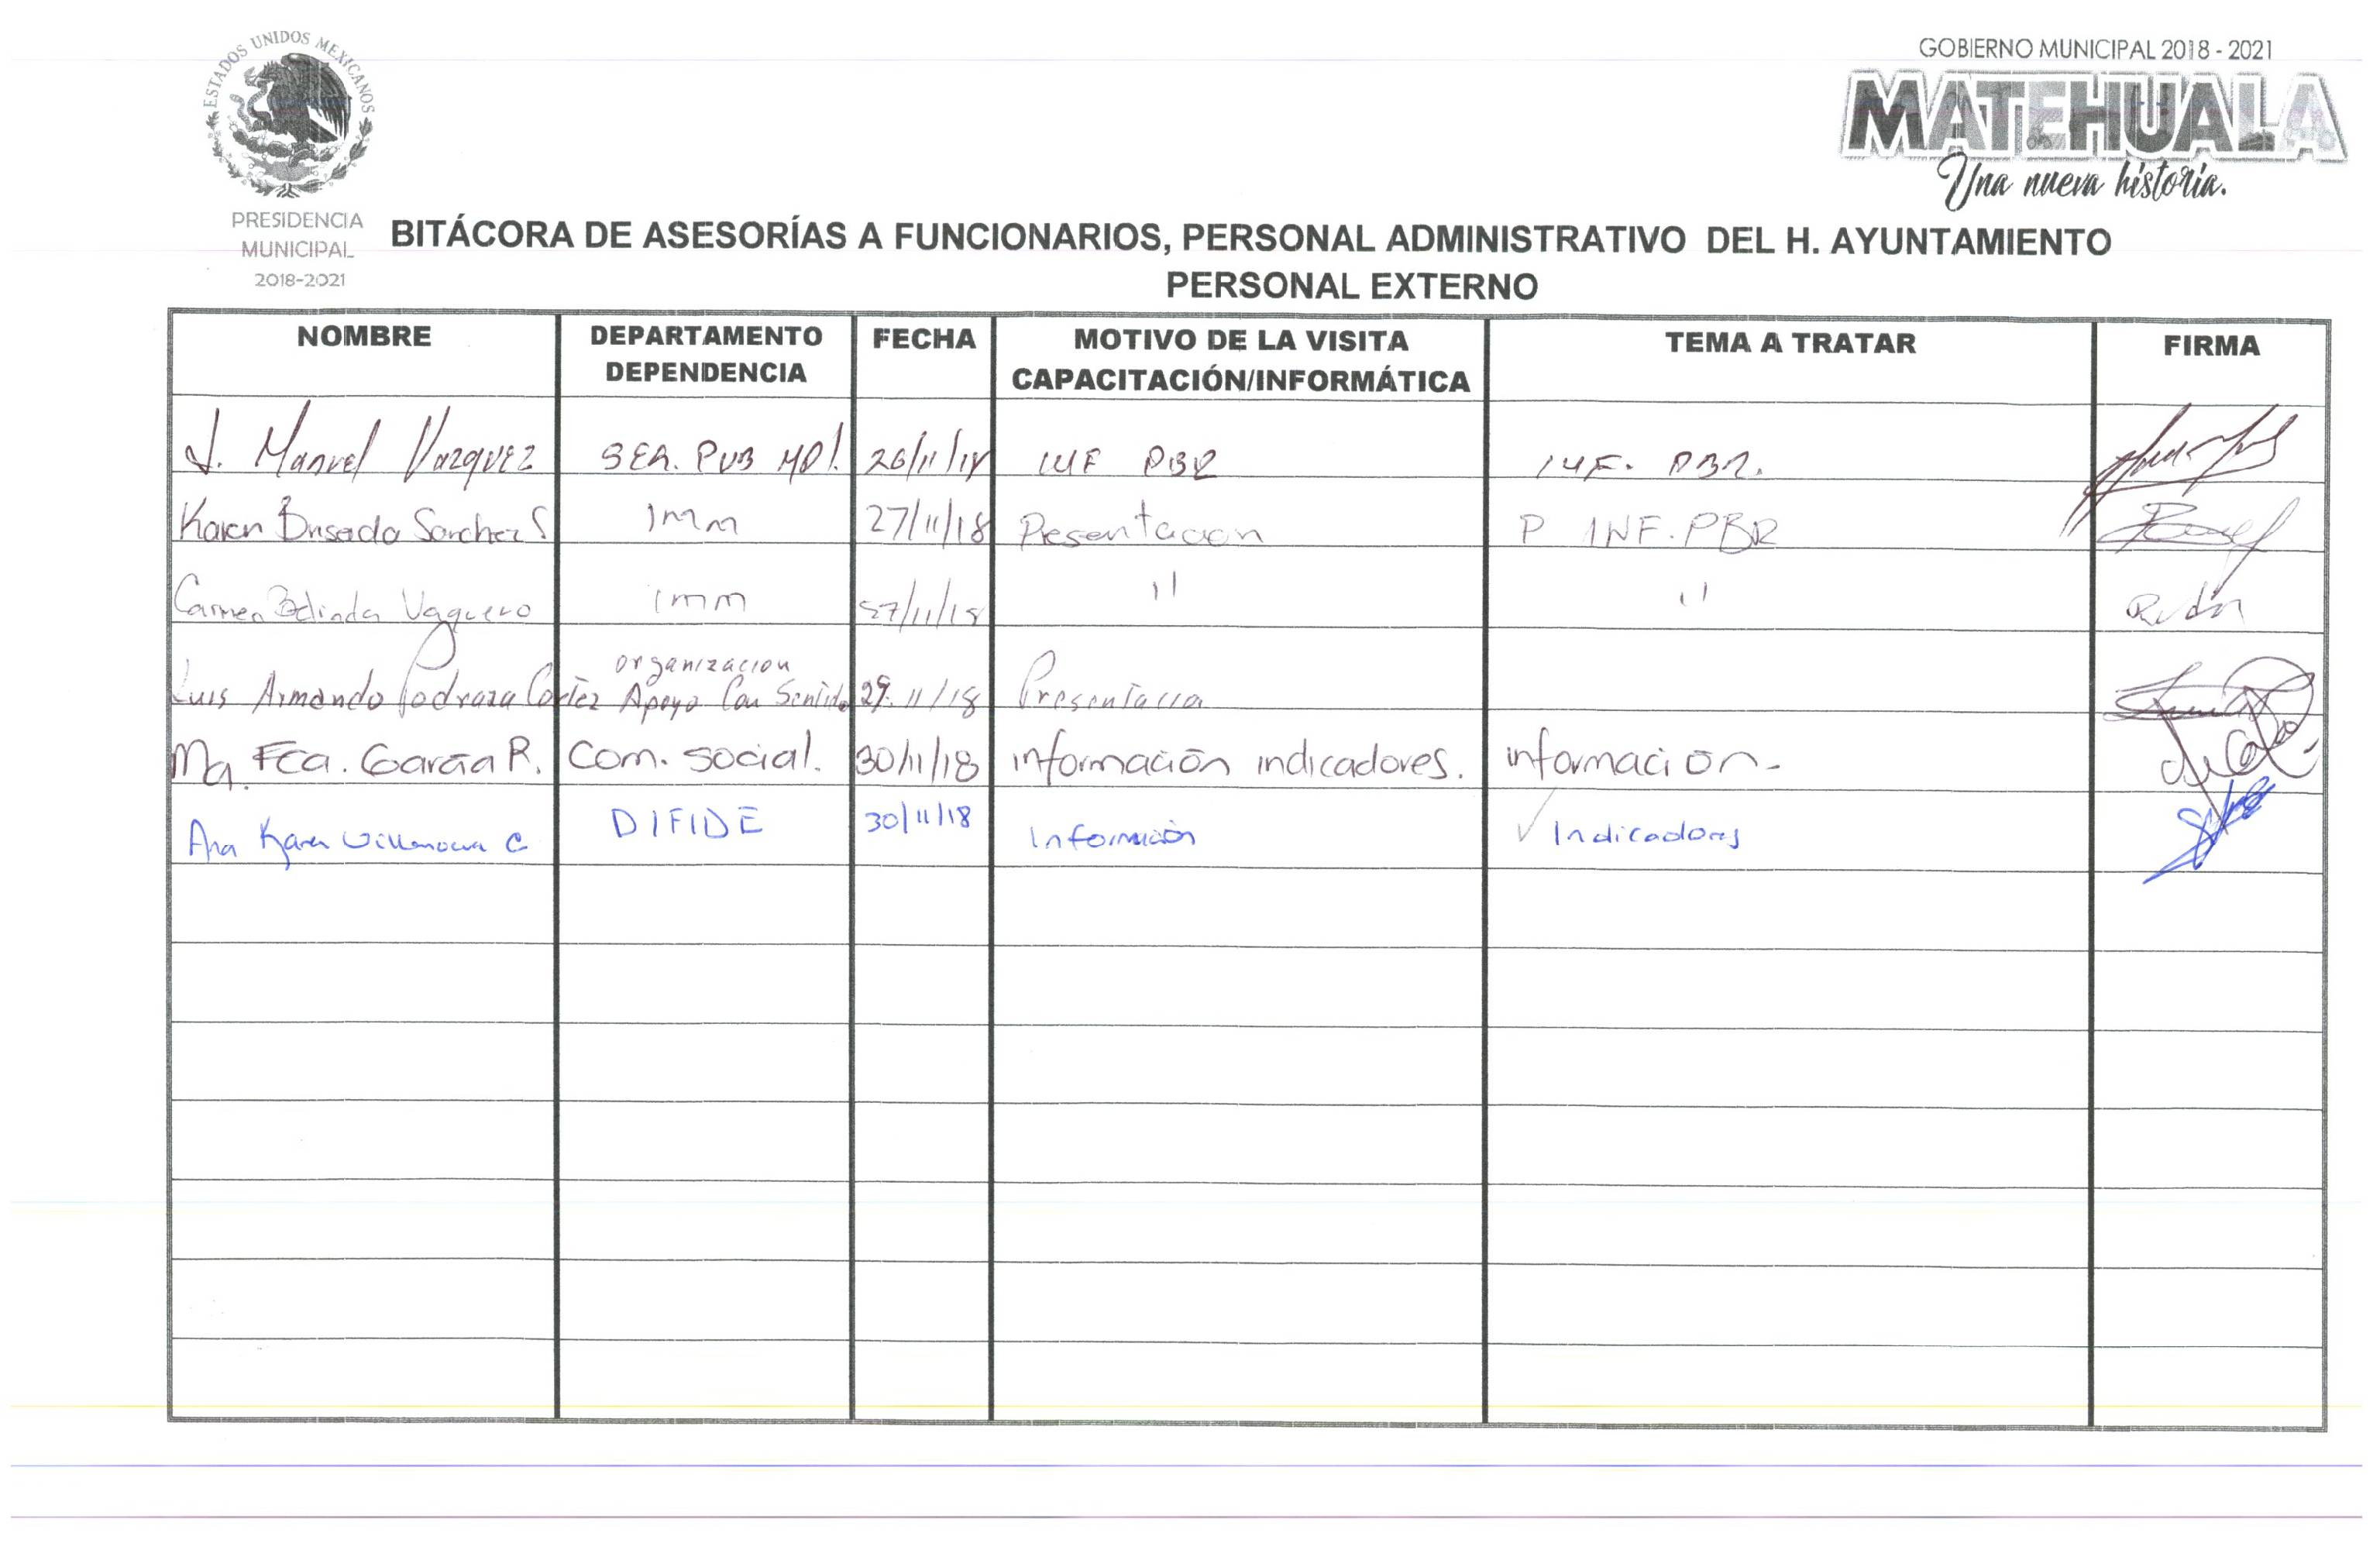 ESTADOS UNIDOS MEXICANOS
GOBIERNO MUNICIPAL 2018 - 2021
MATEHUALA
Una nueva historia.
PRESIDENCIA
MUNICIPAL
2018-2021
BITÁCORA DE ASESORÍAS A FUNCIONARIOS, PERSONAL ADMINISTRATIVO DEL H. AYUNTAMIENTO
PERSONAL EXTERNO
NOMBRE DEPARTAMENTO DEPENDENCIA FECHA MOTIVO DE LA VISITA CAPACITACIÓN/INFORMÁTICA TEMA A TRATAR FIRMA
J. Manuel Vazquez SER. PUB MPl. 26/11/18 INF PBR INF. PBR.
Karen Briseida Sanchez S IMM 27/11/18 Presentacion P INF. PBR
Carmen Belinda Vaquero IMM 27/11/18 " "
Luis Armando Pedraza Cortez organizacion Apoyo Con Sentido 29/11/18 Presentacion
Ma. Fca. García R. Com. social. 30/11/18 información indicadores. información-
Ana Karen Villanueva C DIFIDE 30/11/18 Información Indicadores